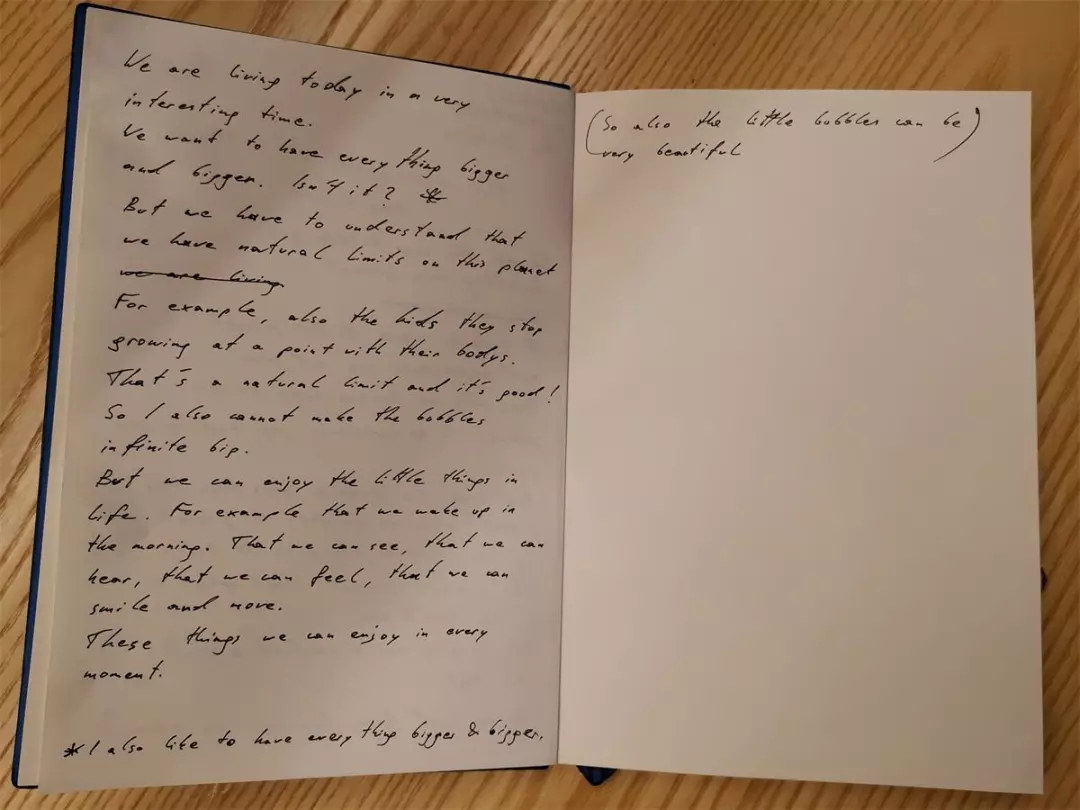 We are living today in a very
interesting time.
We want to have every thing bigger
and bigger. Isn't it? *
But we have to understand that
we have natural limits on this planet
we are living
For example, also the kids they stop
growing at a point with their bodys.
That's a natural limit and it's good!
So I also cannot make the bubbles
infinite big.
But we can enjoy the little things in
life. For example that we wake up in
the morning. That we can see, that we can
hear, that we can feel, that we can
smile and move.
These things we can enjoy in every
moment.
* I also like to have every thing bigger & bigger.
(So also the little bubbles can be)
very beautiful